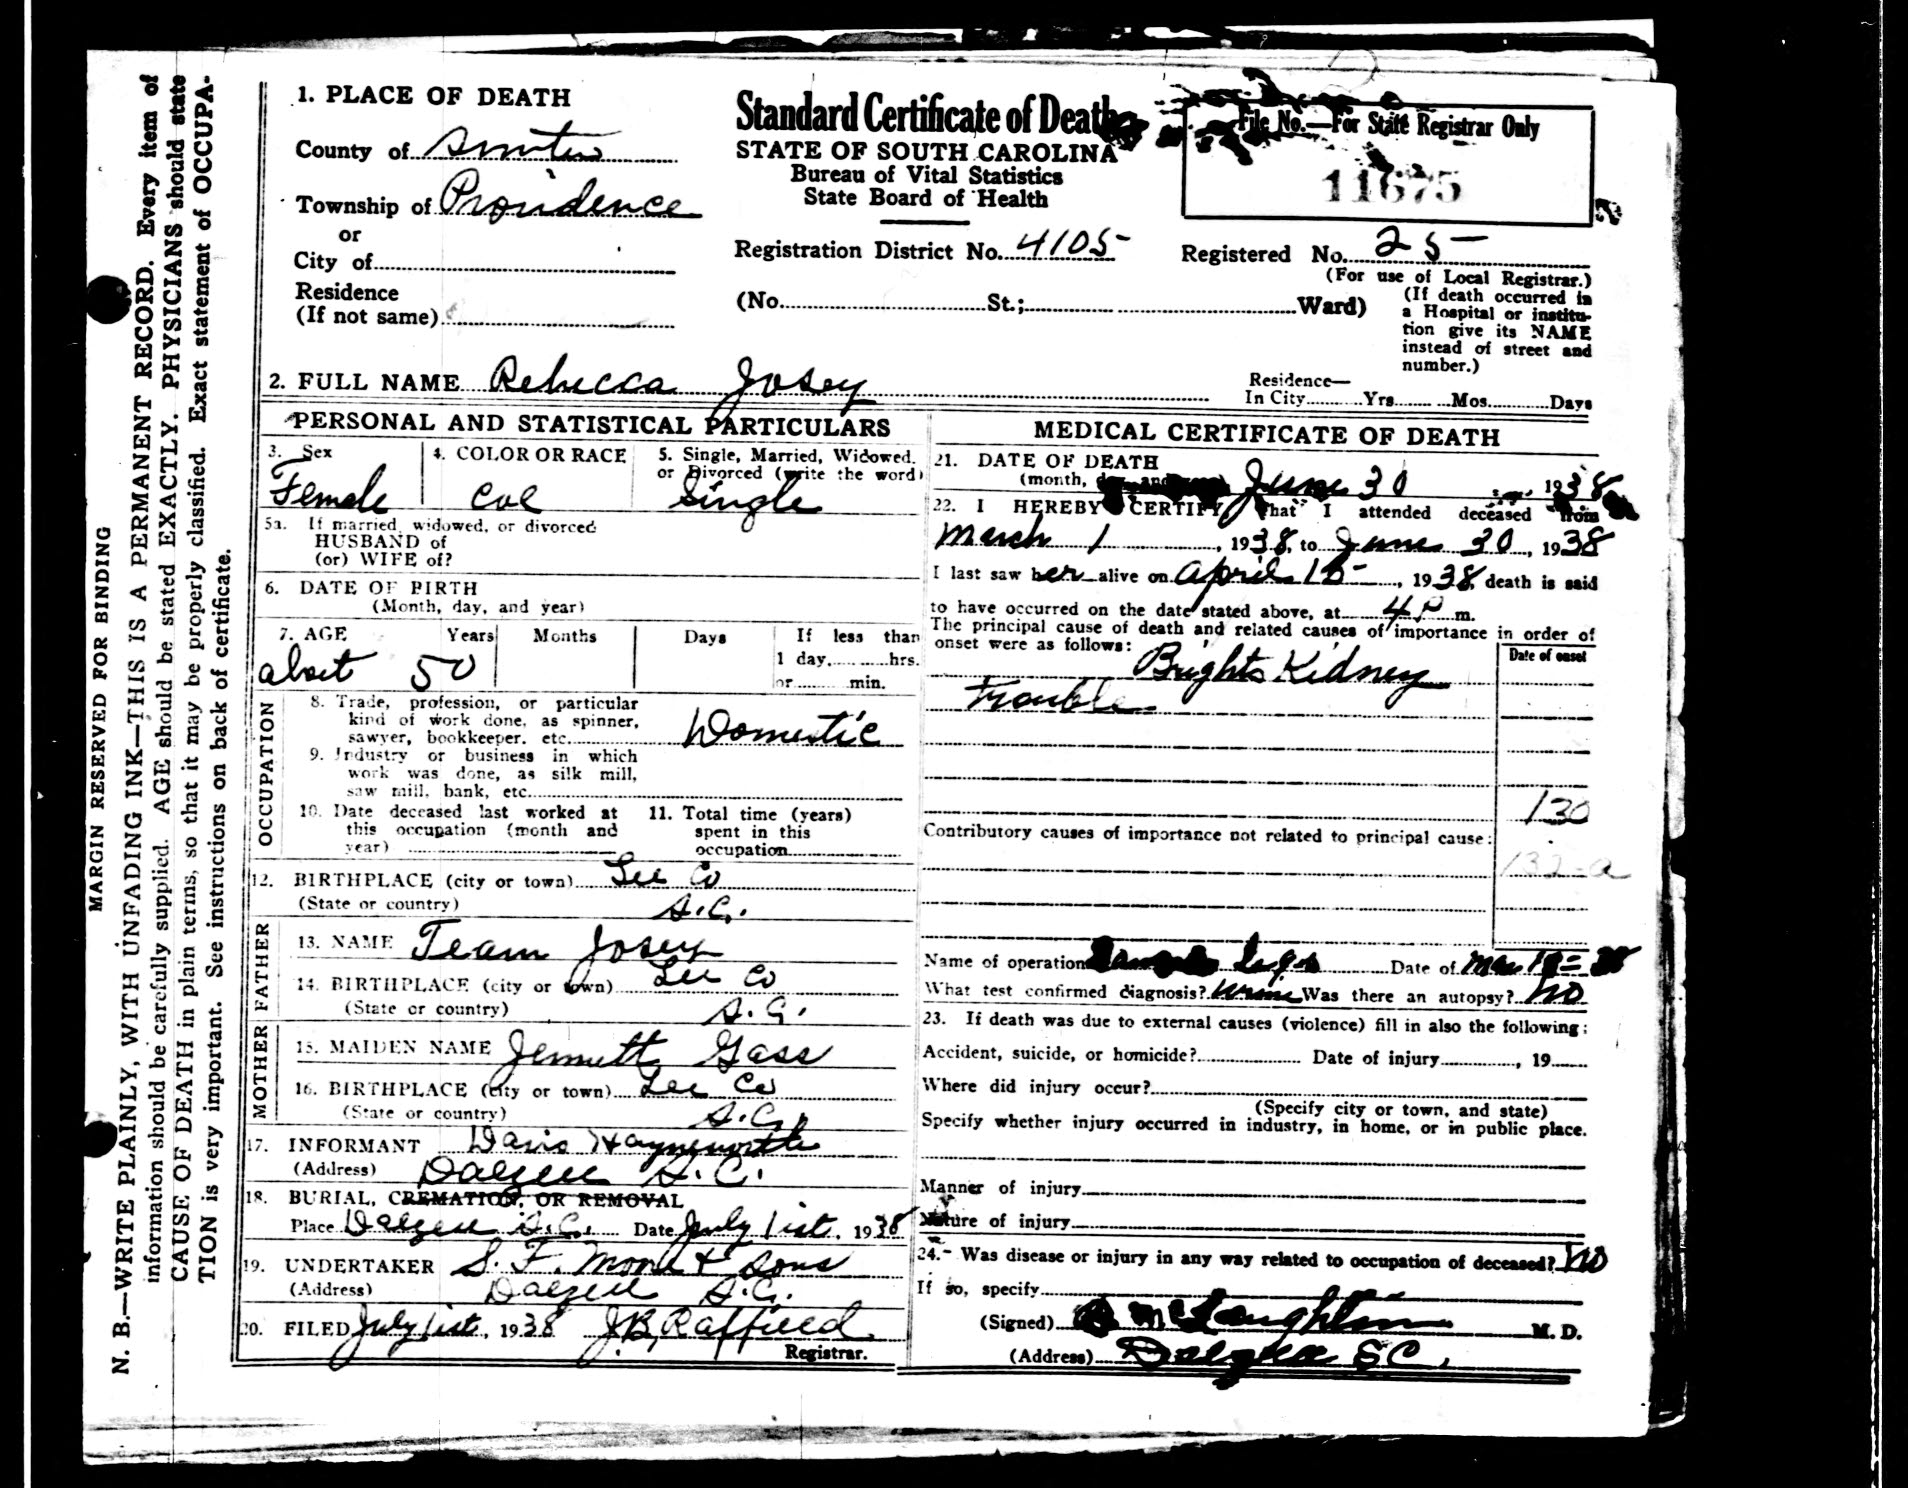 MARGIN RESERVED FOR BINDING
N. B.—WRITE PLAINLY, WITH UNFADING INK—THIS IS A PERMANENT RECORD. Every item of
information should be carefully supplied. AGE should be stated EXACTLY. PHYSICIANS should state
CAUSE OF DEATH in plain terms, so that it may be properly classified. Exact statement of OCCUPA-
TION is very important. See instructions on back of certificate.
1. PLACE OF DEATH
County of Sumter
Township of Providence
or
City of
Residence
(If not same)
Standard Certificate of Death
STATE OF SOUTH CAROLINA
Bureau of Vital Statistics
State Board of Health
File No.—For State Registrar Only
11675
Registration District No. 4105
Registered No. 25
(For use of Local Registrar.)
(No. St.; Ward)
(If death occurred in
a Hospital or institu-
tion give its NAME
instead of street and
number.)
2. FULL NAME Rebecca Josey
Residence—
In City Yrs. Mos. Days
PERSONAL AND STATISTICAL PARTICULARS
3. Sex
Female
4. COLOR OR RACE
Col
5. Single, Married, Widowed,
or Divorced (write the word)
Single
5a. If married, widowed, or divorced
HUSBAND of
(or) WIFE of?
6. DATE OF BIRTH
(Month, day, and year)
7. AGE Years Months Days If less than
1 day, hrs.
or min.
about 50
OCCUPATION
8. Trade, profession, or particular
kind of work done, as spinner,
sawyer, bookkeeper, etc. Domestic
9. Industry or business in which
work was done, as silk mill,
saw mill, bank, etc.
10. Date deceased last worked at
this occupation (month and
year)
11. Total time (years)
spent in this
occupation
12. BIRTHPLACE (city or town) Lee Co
(State or country) S.C.
FATHER
13. NAME Team Josey
14. BIRTHPLACE (city or town) Lee Co
(State or country) S.C.
MOTHER
15. MAIDEN NAME Jennett Gass
16. BIRTHPLACE (city or town) Lee Co
(State or country) S.C.
17. INFORMANT Davis Haynesworth
(Address) Dalzell S.C.
18. BURIAL, CREMATION, OR REMOVAL
Place Dalzell S.C. Date July 1ist, 1938
19. UNDERTAKER S. F. & Sons
(Address) Dalzell S.C.
20. FILED July 1ist, 1938 J.B. Raffield
Registrar.
MEDICAL CERTIFICATE OF DEATH
21. DATE OF DEATH
(month, June 30, 1938
22. I HEREBY CERTIFY, That I attended deceased from
March 1, 1938, to June 30, 1938
I last saw her alive on April 15, 1938, death is said
to have occurred on the date stated above, at 4 P m.
The principal cause of death and related causes of importance in order of
onset were as follows:
Date of onset
Brights Kidney
Trouble
130
Contributory causes of importance not related to principal cause:
132-a
Name of operation Date of
What test confirmed diagnosis? Urine Was there an autopsy? No
23. If death was due to external causes (violence) fill in also the following:
Accident, suicide, or homicide? Date of injury , 19
Where did injury occur?
(Specify city or town, and state)
Specify whether injury occurred in industry, in home, or in public place.
Manner of injury
Nature of injury
24. Was disease or injury in any way related to occupation of deceased? No
If so, specify
(Signed) McLaughlin M. D.
(Address) Dalzell SC.